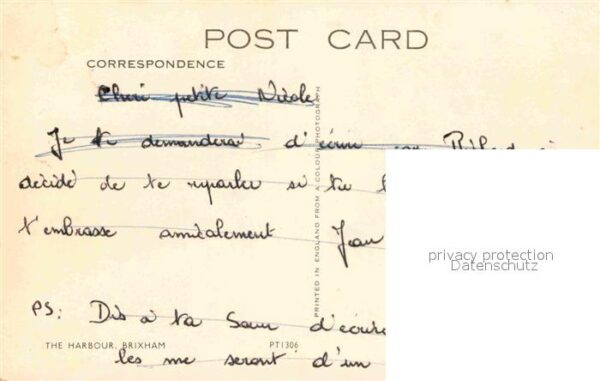 POST CARD
CORRESPONDENCE
Cheri petite Nicole
Je te demanderai d'écrire
décidé de te reparler si tu
t'embrasse amicalement Jean
PS: Dis à ta Sœur d'écrire
les me seront d'un
THE HARBOUR, BRIXHAM PT1306
PRINTED IN ENGLAND FROM A COLOUR PHOTOGRAPH
privacy protection
Datenschutz